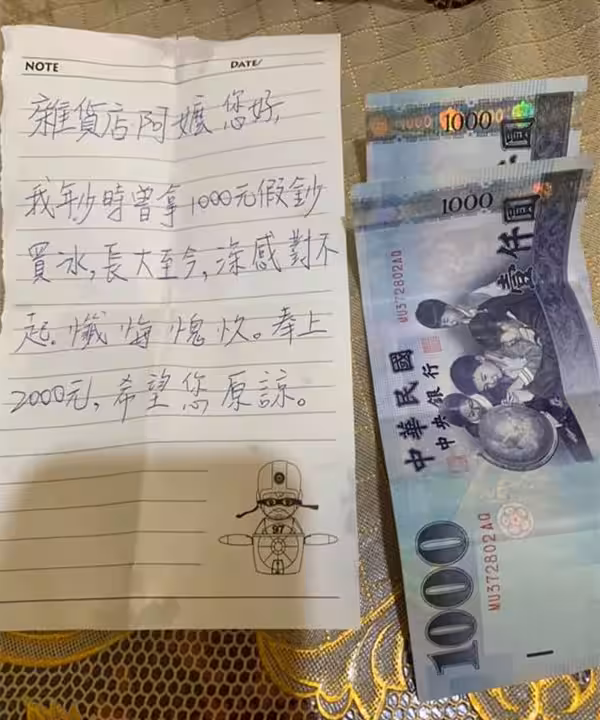 NOTE DATE/
雜貨店阿嬤您好,
我年幼時曾拿1000元假鈔
買冰,長大至今,深感對不
起.懺悔愧疚。奉上
2000元,希望您原諒。
97
1000
圓
1000
壹仟圓
MU372802AQ
中華民國
中央銀行
1000
MU372802AQ